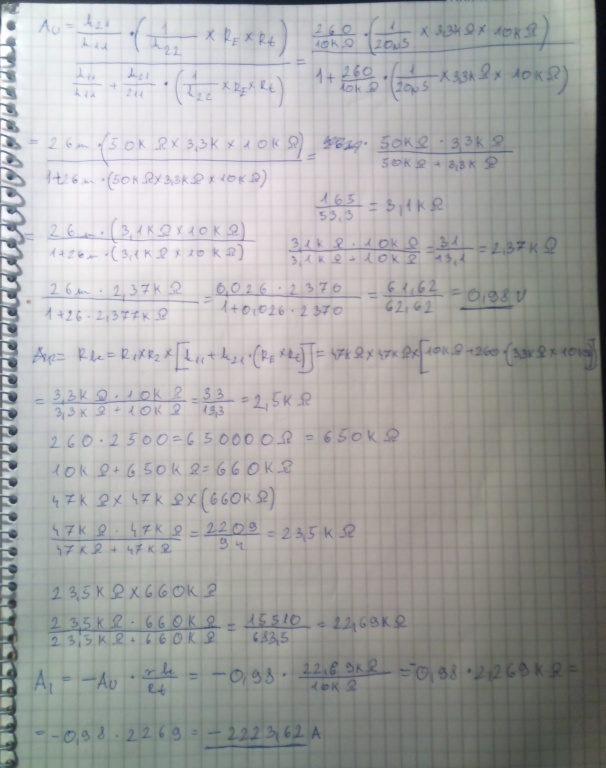 Au = h21/h11 · (1/h22 × RE × Rt) / h11/h11 + h21/h11 · (1/h22 × RE × Rt) = 260/10kΩ · (1/20µS × 3,3kΩ × 10kΩ) / 1 + 260/10kΩ · (1/20µS × 3,3kΩ × 10kΩ)
= 26m · (50kΩ × 3,3k × 10kΩ) / 1+26m · (50kΩ × 3,3kΩ × 10kΩ) = 50kΩ · 3,3kΩ / 50kΩ + 3,3kΩ
165/53,3 = 3,1kΩ
= 26m · (3,1kΩ × 10kΩ) / 1+26m · (3,1kΩ × 10kΩ) 3,1kΩ · 10kΩ / 3,1kΩ + 10kΩ = 31/13,1 = 2,37kΩ
26m · 2,37kΩ / 1+26 · 2,377kΩ = 0,026 · 2370 / 1+0,026 · 2370 = 61,62/62,62 = 0,98 V
= Rbe = R1×R2× [h11 + h21 · (RE × Rt)] = 47kΩ × 47kΩ × [10kΩ + 260 · (3,3kΩ × 10kΩ)]
= 3,3kΩ · 10kΩ / 3,3kΩ + 10kΩ = 33/13,3 = 2,5kΩ
260 · 2500 = 650000Ω = 650kΩ
10kΩ + 650kΩ = 660kΩ
47kΩ × 47kΩ × (660kΩ)
47kΩ · 47kΩ / 47kΩ + 47kΩ = 2209/94 = 23,5kΩ
23,5kΩ × 660kΩ
23,5kΩ · 660kΩ / 23,5kΩ + 660kΩ = 15510/683,5 = 22,69kΩ
Ai = −Au · rbe/Rt = −0,98 · 22,69kΩ/10kΩ = −0,98 · 2,269kΩ =
= −0,98 · 2269 = −2223,62 A